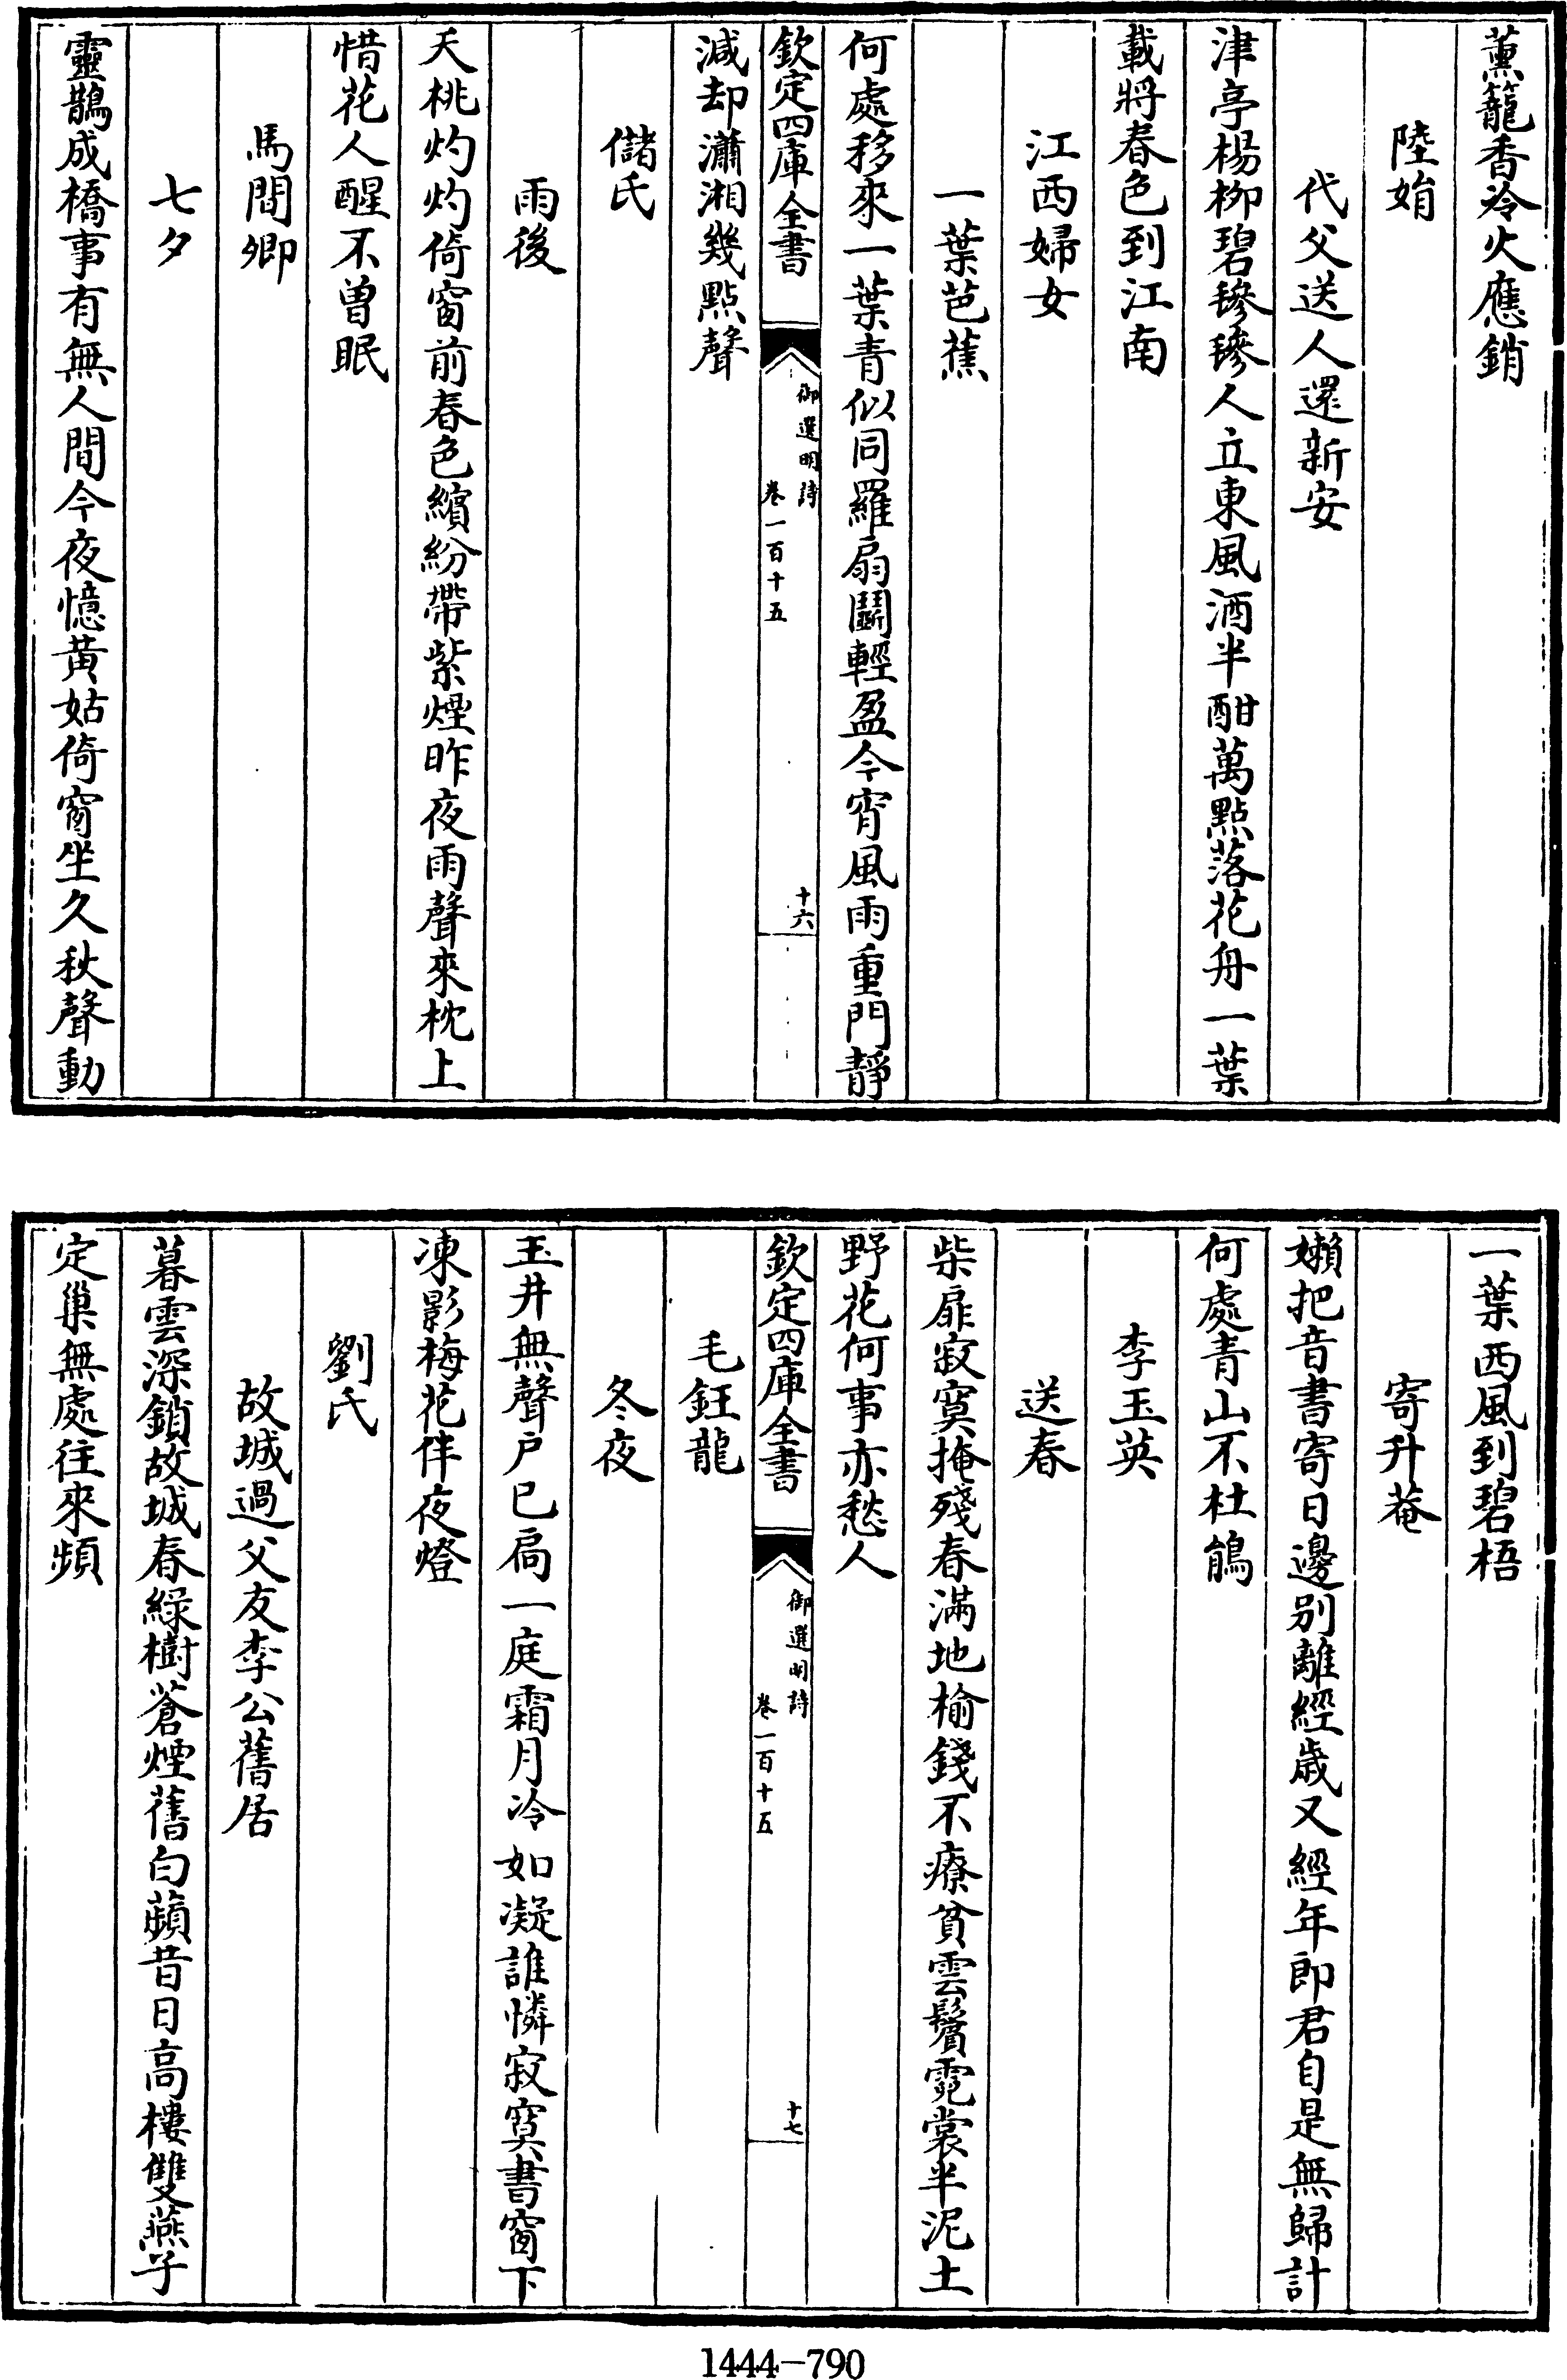 薰籠香冷火應銷
陸娟
代父送人還新安
津亭楊柳碧毿毿人立東風酒半酣萬點落花舟一葉
載將春色到江南
江西婦女
一葉芭蕉
何處移來一葉青似同羅扇鬬輕盈今宵風雨重門靜
欽定四庫全書
御選明詩
卷一百十五
十六
減却瀟湘幾點聲
儲氏
雨後
夭桃灼灼倚窗前春色繽紛帶紫煙昨夜雨聲來枕上
惜花人醒不曽眠
馬閒卿
七夕
靈鵲成橋事有無人間今夜憶黃姑倚窗坐久秋聲動
一葉西風到碧梧
寄升菴
嬾把音書寄日邊别離經歲又經年郎君自是無歸計
何處青山不杜鵑
李玉英
送春
柴扉寂寞掩殘春滿地榆錢不療貧雲鬢霓裳半泥土
野花何事亦愁人
欽定四庫全書
御選明詩
卷一百十五
十七
毛鈺龍
冬夜
玉井無聲户已扃一庭霜月冷如凝誰憐寂寞書窗下
凍影梅花伴夜燈
劉氏
故城過父友李公舊居
暮雲深鎖故城春綠樹蒼煙舊白蘋昔日高樓雙燕子
定巢無處往來頻
1444-790